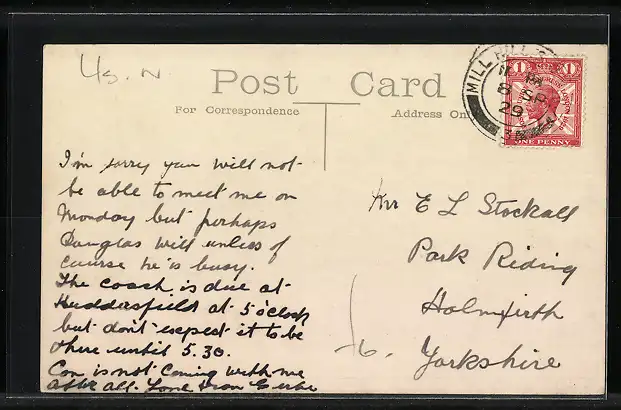 4s. N.
Post Card
For Correspondence
Address On
MILL HILL
8 SP
29
1 1
ONE PENNY
I'm sorry you will not
be able to meet me on
Monday but perhaps
Douglas will unless of
course he is busy.
The coach is due at
Huddersfield at 5 o'clock
but don't expect it to be
there until 5.30.
Con is not coming with me
after all. Love from
E L Stockall
Park Riding
Holmfirth
Yorkshire